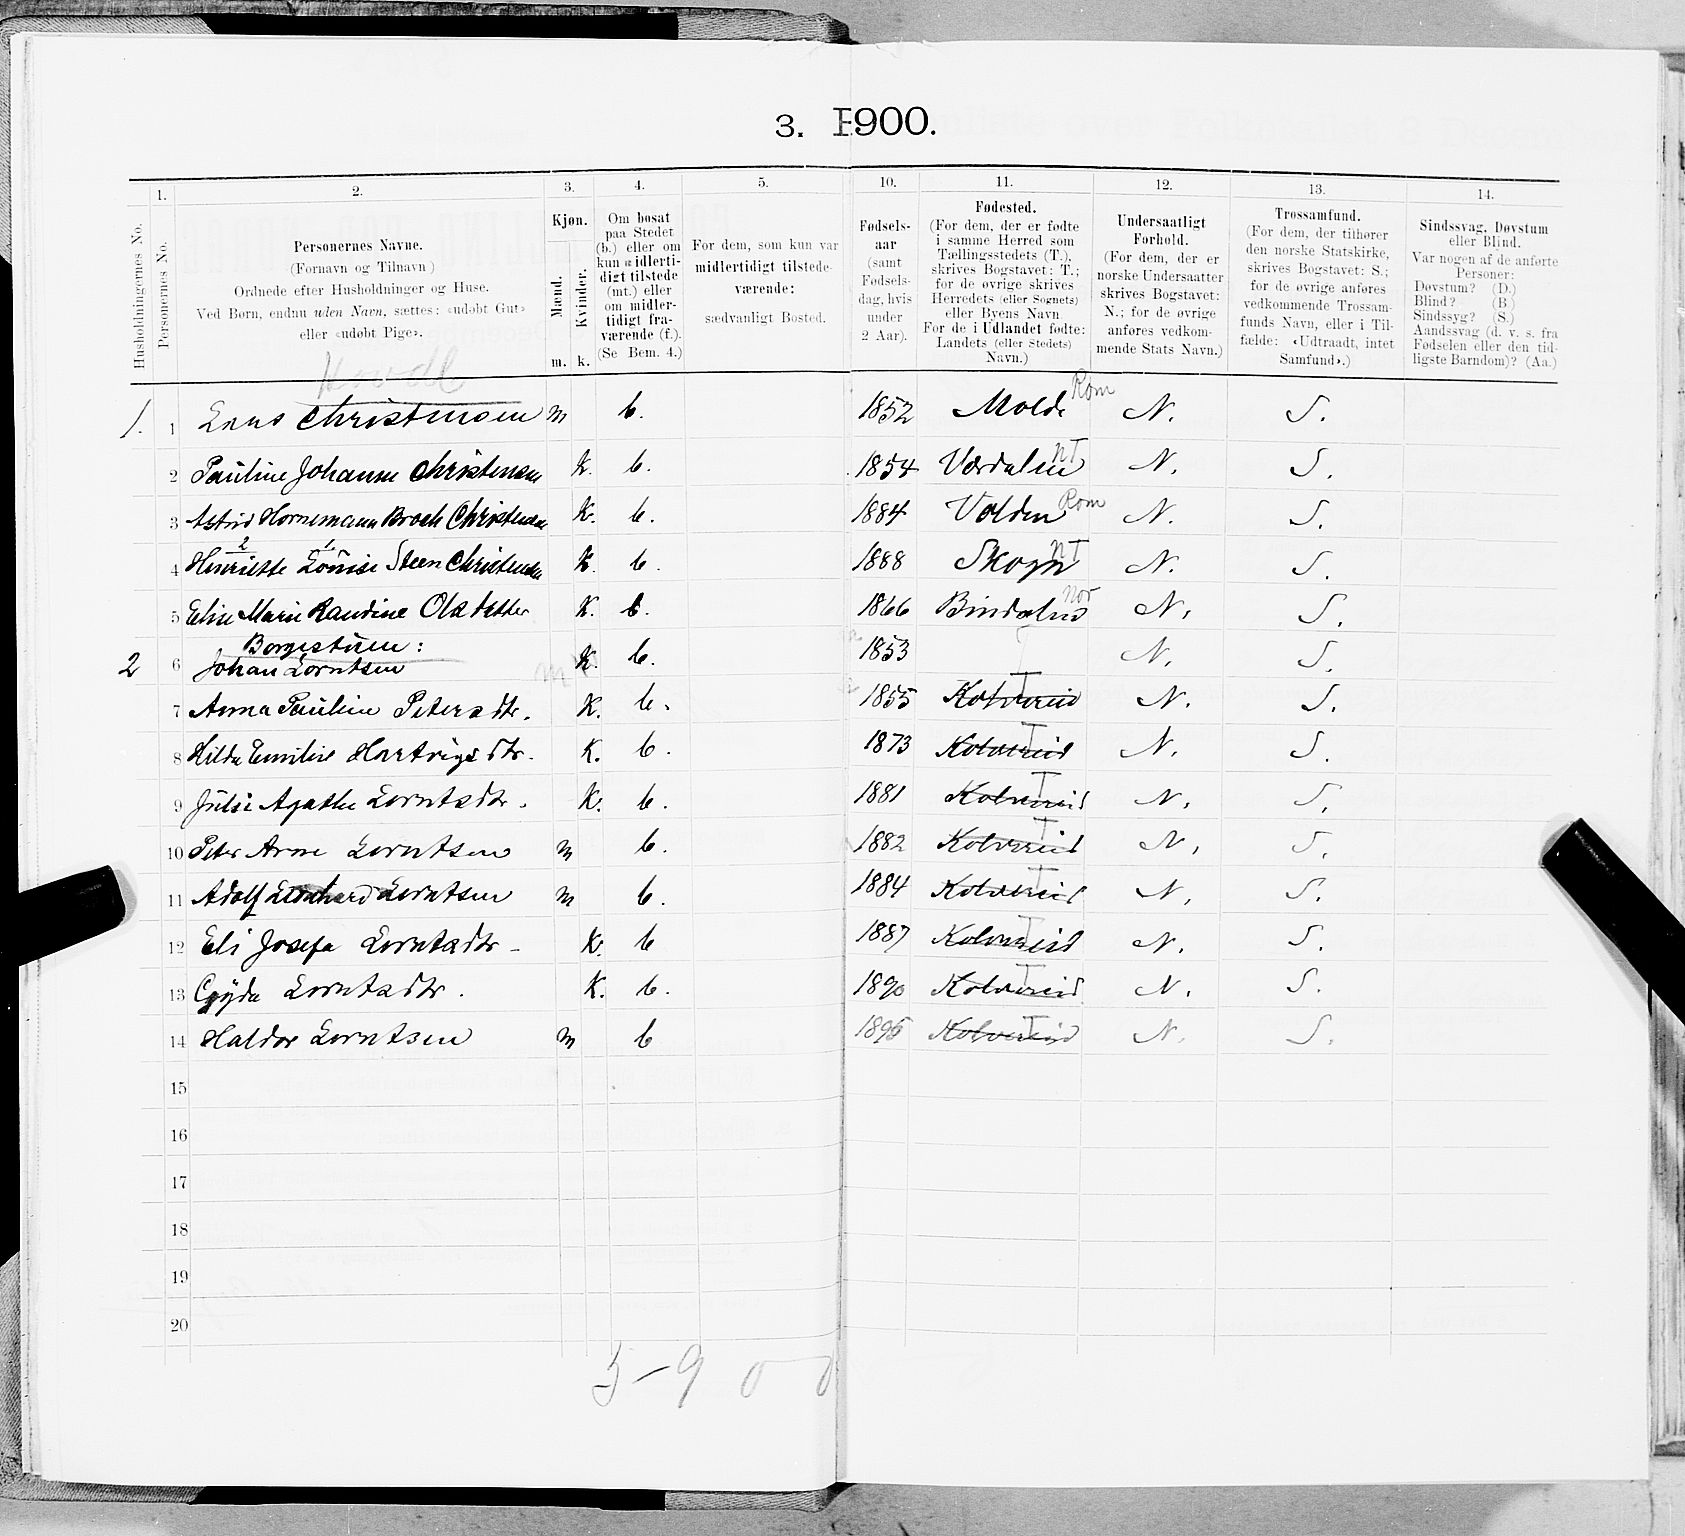 3. 1900.
1. 2. 3. 4. 5. 10. 11. 12. 13. 14.
Husholdningernes No.
Personernes No.
Personernes Navne.
(Fornavn og Tilnavn)
Ordnede efter Husholdninger og Huse.
Ved Børn, endnu uden Navn, sættes: «udøbt Gut»
eller «udøbt Pige».
Kjøn.
Mænd.
Kvinder.
m. k.
Om bosat
paa Stedet
(b.) eller om
kun midlerti-
digt tilstede
(mt.) eller
om midler-
tidigt fra-
værende (f.).
(Se Bem. 4.)
For dem, som kun var
midlertidigt tilstede-
værende:
sædvanligt Bosted.
Fødsels-
aar
(samt
Fødsels-
dag, hvis
under
2 Aar).
Fødested.
(For dem, der er fødte
i samme Herred som
Tællingsstedets (T.),
skrives Bogstavet: T.;
for de øvrige skrives
Herredets (eller Sognets)
eller Byens Navn.
For de i Udlandet fødte:
Landets (eller Stedets)
Navn.)
Undersaatligt
Forhold.
(For dem, der er
norske Undersaatter
skrives Bogstavet:
N.; for de øvrige
anføres vedkom-
mende Stats Navn.)
Trossamfund.
(For dem, der tilhører
den norske Statskirke,
skrives Bogstavet: S.;
for de øvrige anføres
vedkommende Trossam-
funds Navn, eller i Til-
fælde: «Udtraadt, intet
Samfund».)
Sindssvag, Døvstum
eller Blind.
Var nogen af de anførte
Personer:
Døvstum? (D.)
Blind? (B.)
Sindssyg? (S.)
Aandssvag (d. v. s. fra
Fødselen eller den tid-
ligste Barndom)? (Aa.)
1. 1 Christensen m b. 1852 Molde Rom N. S.
2 Pauline Johanne Christensen K. b. 1854 Værdalen NT N. S.
3 Astrid Hornemann Broch Christensen K. b. 1884 Volden Rom N. S.
2 1.
4 Henriette Louise Steen Christensen K. b. 1888 Skogn NT N. S.
5 Elise Marie Randine Olsdatter K. b. 1866 Bindalen Nor N. S.
Borgestuen:
2 6 Johan Lorntsen m K. b. 1853 N. S.
7 Anna Pauline Petersdtr. K. b. 1855 Kolvereid T N. S.
8 Hilda Emilie Hartvigsdtr. K. b. 1873 Kolvereid T N. S.
9 Julie Agathe Lorntsdtr. K. b. 1881 Kolvereid T N. S.
10 Peter Arne Lorntsen m b. 1882 Kolvereid T N. S.
11 Adolf Leonhard Lorntsen m b. 1884 Kolvereid T N. S.
12 Eli Josefa Lorntsdtr - K. b 1887 Kolvereid T N. S.
13 Gyda Lorntsdtr. K. b. 1890 Kolvereid T N. S.
14 Haldor Lorntsen m b 1895 Kolvereid T N. S.
15
16
17
18
19
20
5-9 0 0